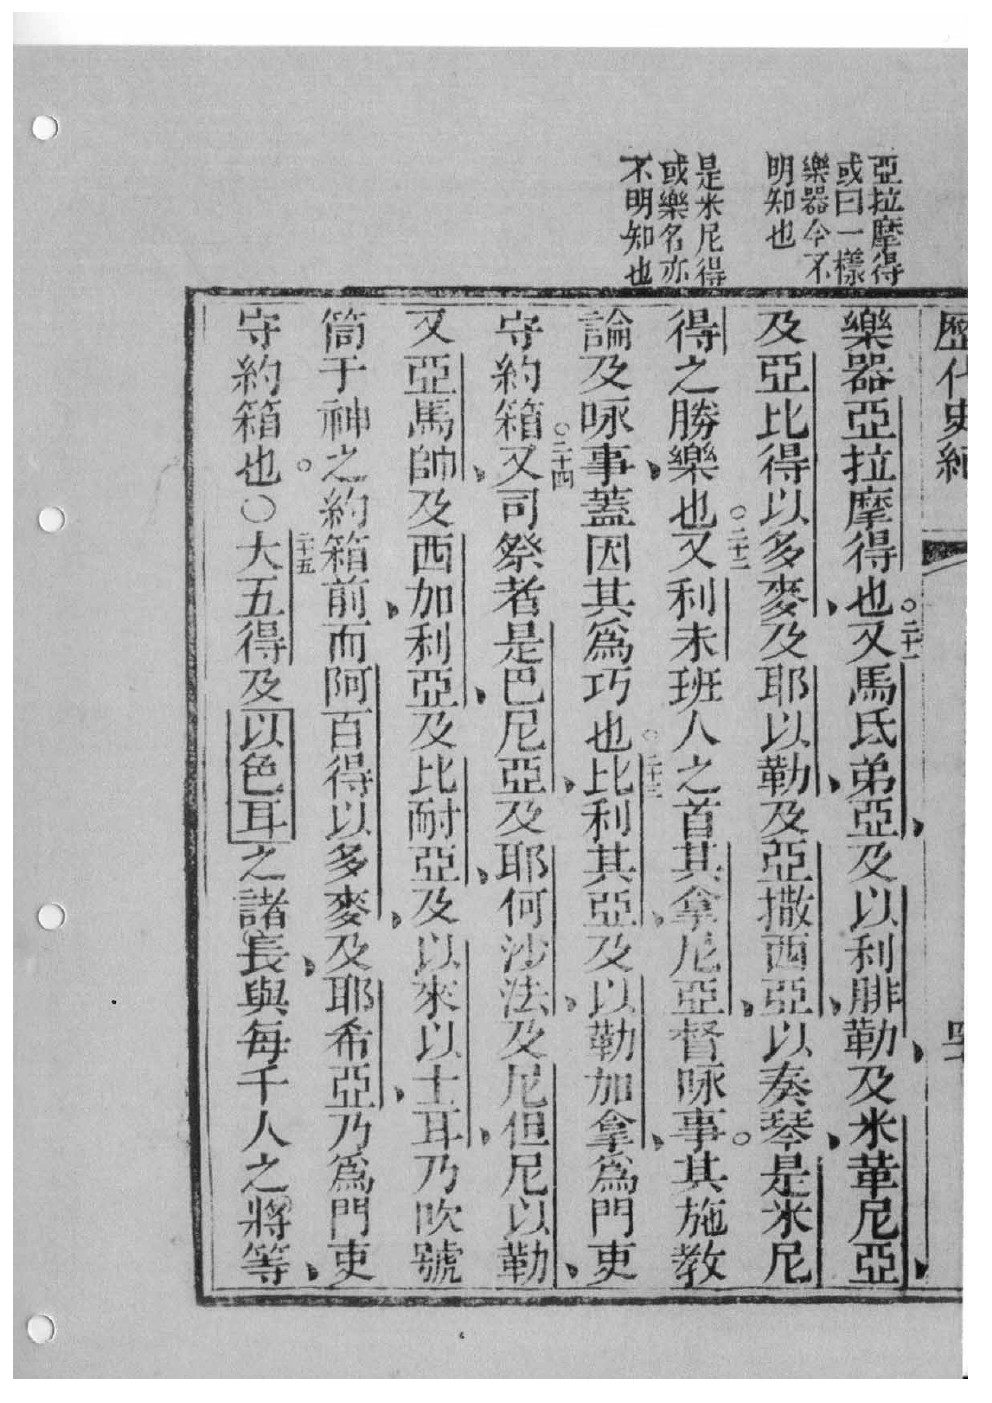 歷代史紀
亞拉摩得
或曰一樣
樂器今不
明知也
是米尼得
或樂名亦
不明知也
樂器亞拉摩得也○二十一又馬氐弟亞及以利腓勒及米革尼亞
及亞比得以多麥及耶以勒及亞撒西亞以奏琴是米尼
得之勝樂也○二十二又利未班人之首其拿尼亞督咏事其施教
論及咏事蓋因其爲巧也○二十三比利其亞及以勒加拿爲門吏
守約箱○二十四又司祭者是巴尼亞及耶何沙法及尼但尼以勒
又亞馬帥及西加利亞及比耐亞及以來以士耳乃吹號
筒于神之約箱前而阿百得以多麥及耶希亞乃爲門吏
守約箱也○二十五大五得及以色耳之諸長與每千人之將等